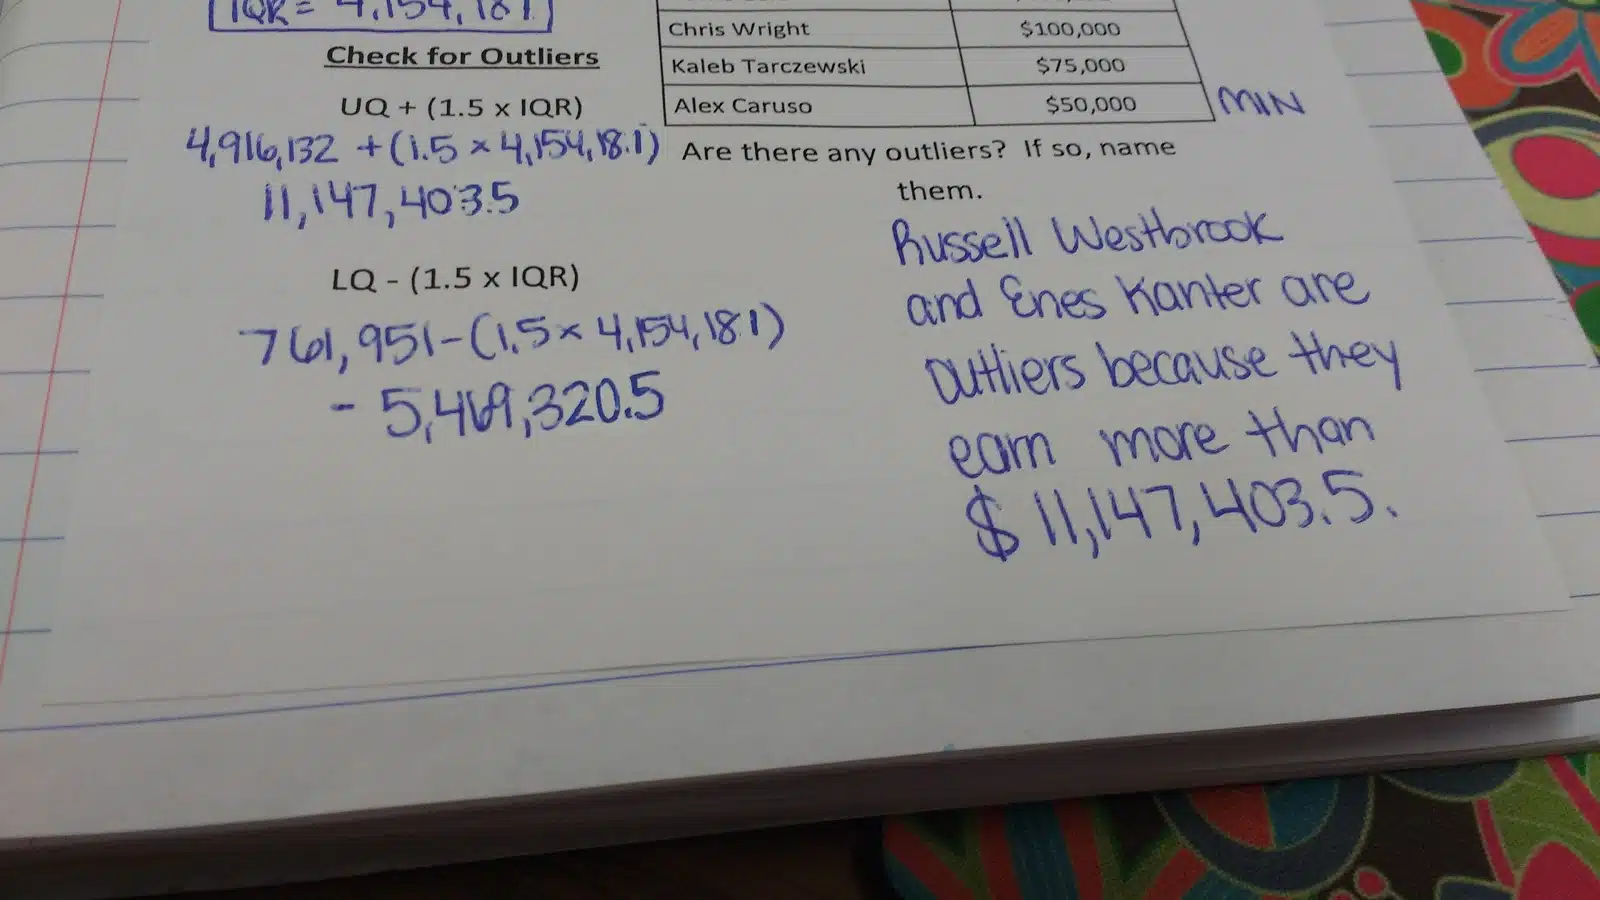 IQR = 4,154,181
Check for Outliers
UQ + (1.5 x IQR)
4,916,132 + (1.5 × 4,154,181)
11,147,403.5
LQ - (1.5 x IQR)
761,951 - (1.5 × 4,154,181)
- 5,469,320.5
Chris Wright $100,000
Kaleb Tarczewski $75,000
Alex Caruso $50,000 MIN
Are there any outliers? If so, name
them.
Russell Westbrook
and Enes Kanter are
outliers because they
earn more than
$ 11,147,403.5.